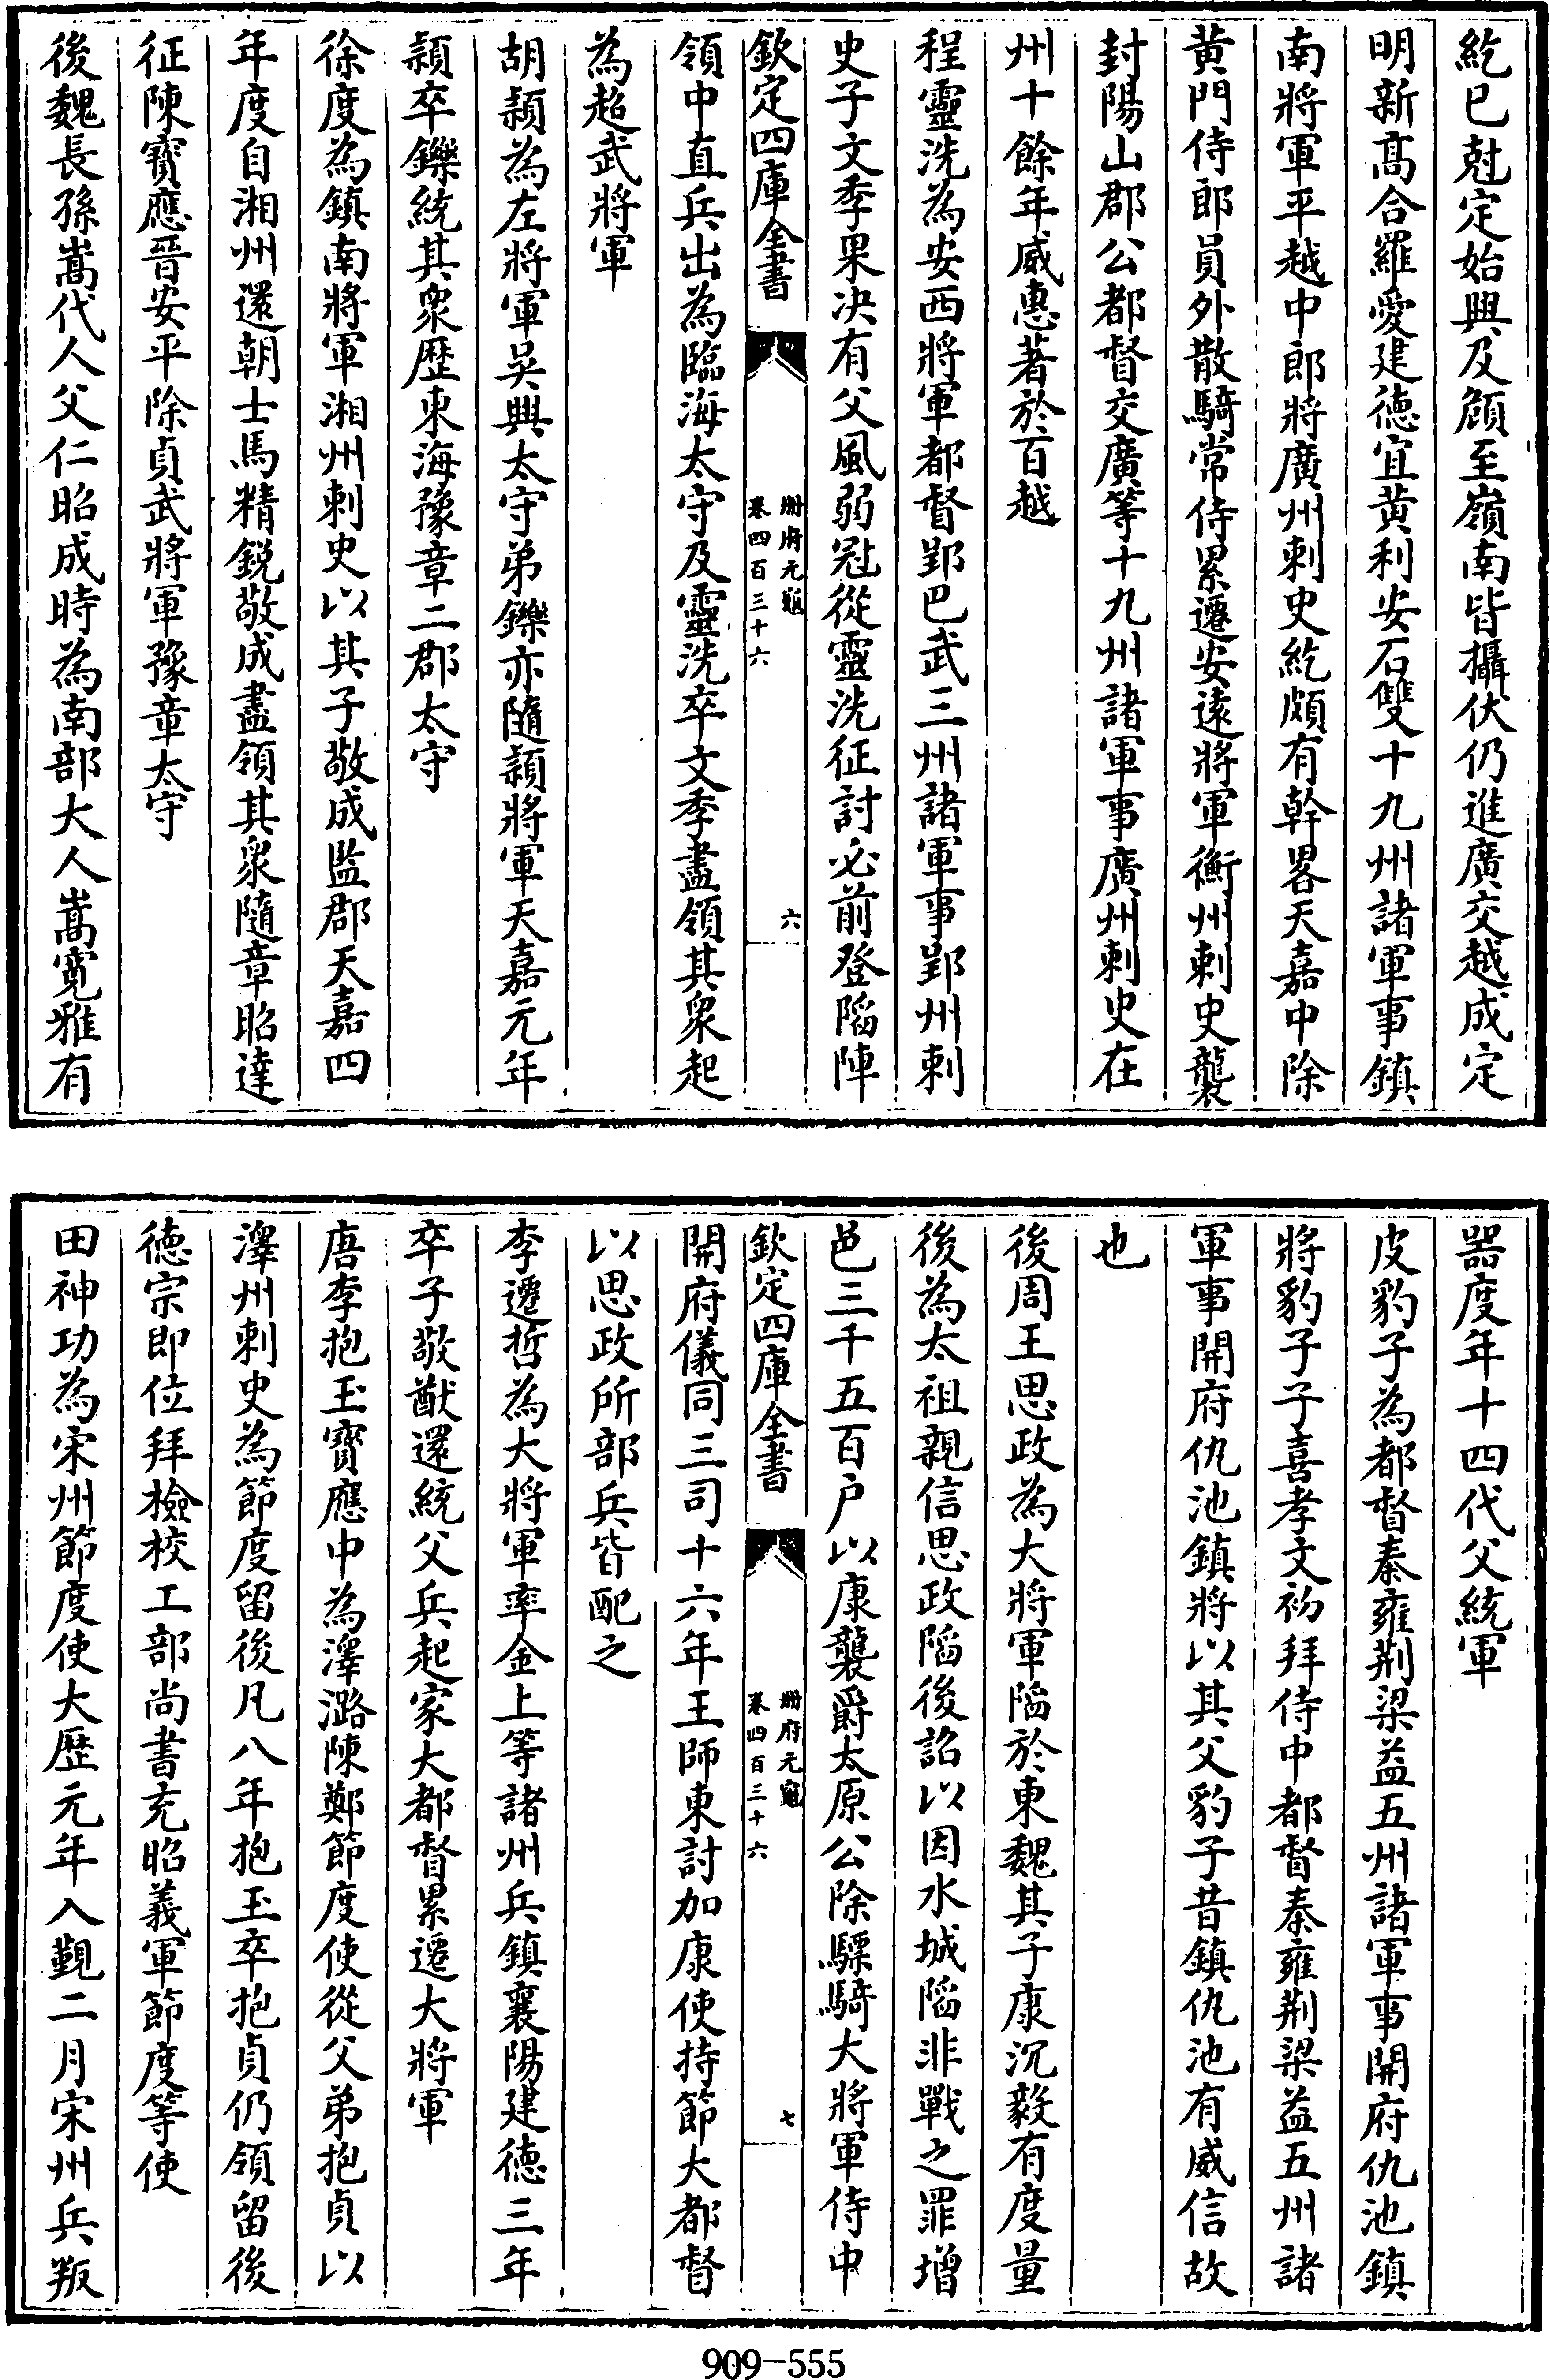 紇已尅定始興及頠至嶺南皆攝伏仍進廣交越成定
明新髙合羅愛建徳宜黄利安石雙十九州諸軍事鎮
南將軍平越中郎將廣州刺史紇頗有幹畧天嘉中除
黄門侍郎員外散騎常侍累遷安逺將軍衡州刺史襲
封陽山郡公都督交廣等十九州諸軍事廣州刺史在
州十餘年威惠著於百越
程靈洗為安西將軍都督郢巴武三州諸軍事郢州刺
史子文季果决有父風弱冠從靈洗征討必前登䧟陣
欽定四庫全書
冊府元龜
卷四百三十六
六
領中直兵出為臨海太守及靈洗卒文季盡領其衆起
為超武將軍
胡頴為左將軍吳興太守弟鑠亦隨頴將軍天嘉元年
頴卒鑠統其衆歴東海豫章二郡太守
徐度為鎮南將軍湘州刺史以其子敬成監郡天嘉四
年度自湘州還朝士馬精鋭敬成盡領其衆隨章昭達
征陳寳應晉安平除貞武將軍豫章太守
後魏長孫嵩代人父仁昭成時為南部大人嵩寛雅有
器度年十四代父統軍
皮豹子為都督秦雍荆梁益五州諸軍事開府仇池鎮
將豹子子喜孝文初拜侍中都督秦雍荆梁益五州諸
軍事開府仇池鎮將以其父豹子昔鎮仇池有威信故
也
後周王思政為大將軍䧟於東魏其子康沉毅有度量
後為太祖親信思政䧟後詔以因水城䧟非戰之罪增
邑三千五百户以康襲爵太原公除驃騎大將軍侍中
欽定四庫全書
冊府元龜
卷四百三十六
七
開府儀同三司十六年王師東討加康使持節大都督
以思政所部兵皆配之
李遷哲為大將軍率金上等諸州兵鎮襄陽建徳三年
卒子敬猷還統父兵起家大都督累遷大將軍
唐李抱玉寳應中為澤潞陳鄭節度使從父弟抱貞以
澤州刺史為節度留後凡八年抱玉卒抱貞仍領留後
徳宗即位拜檢校工部尚書充昭義軍節度等使
田神功為宋州節度使大歴元年入覲二月宋州兵叛
909-555